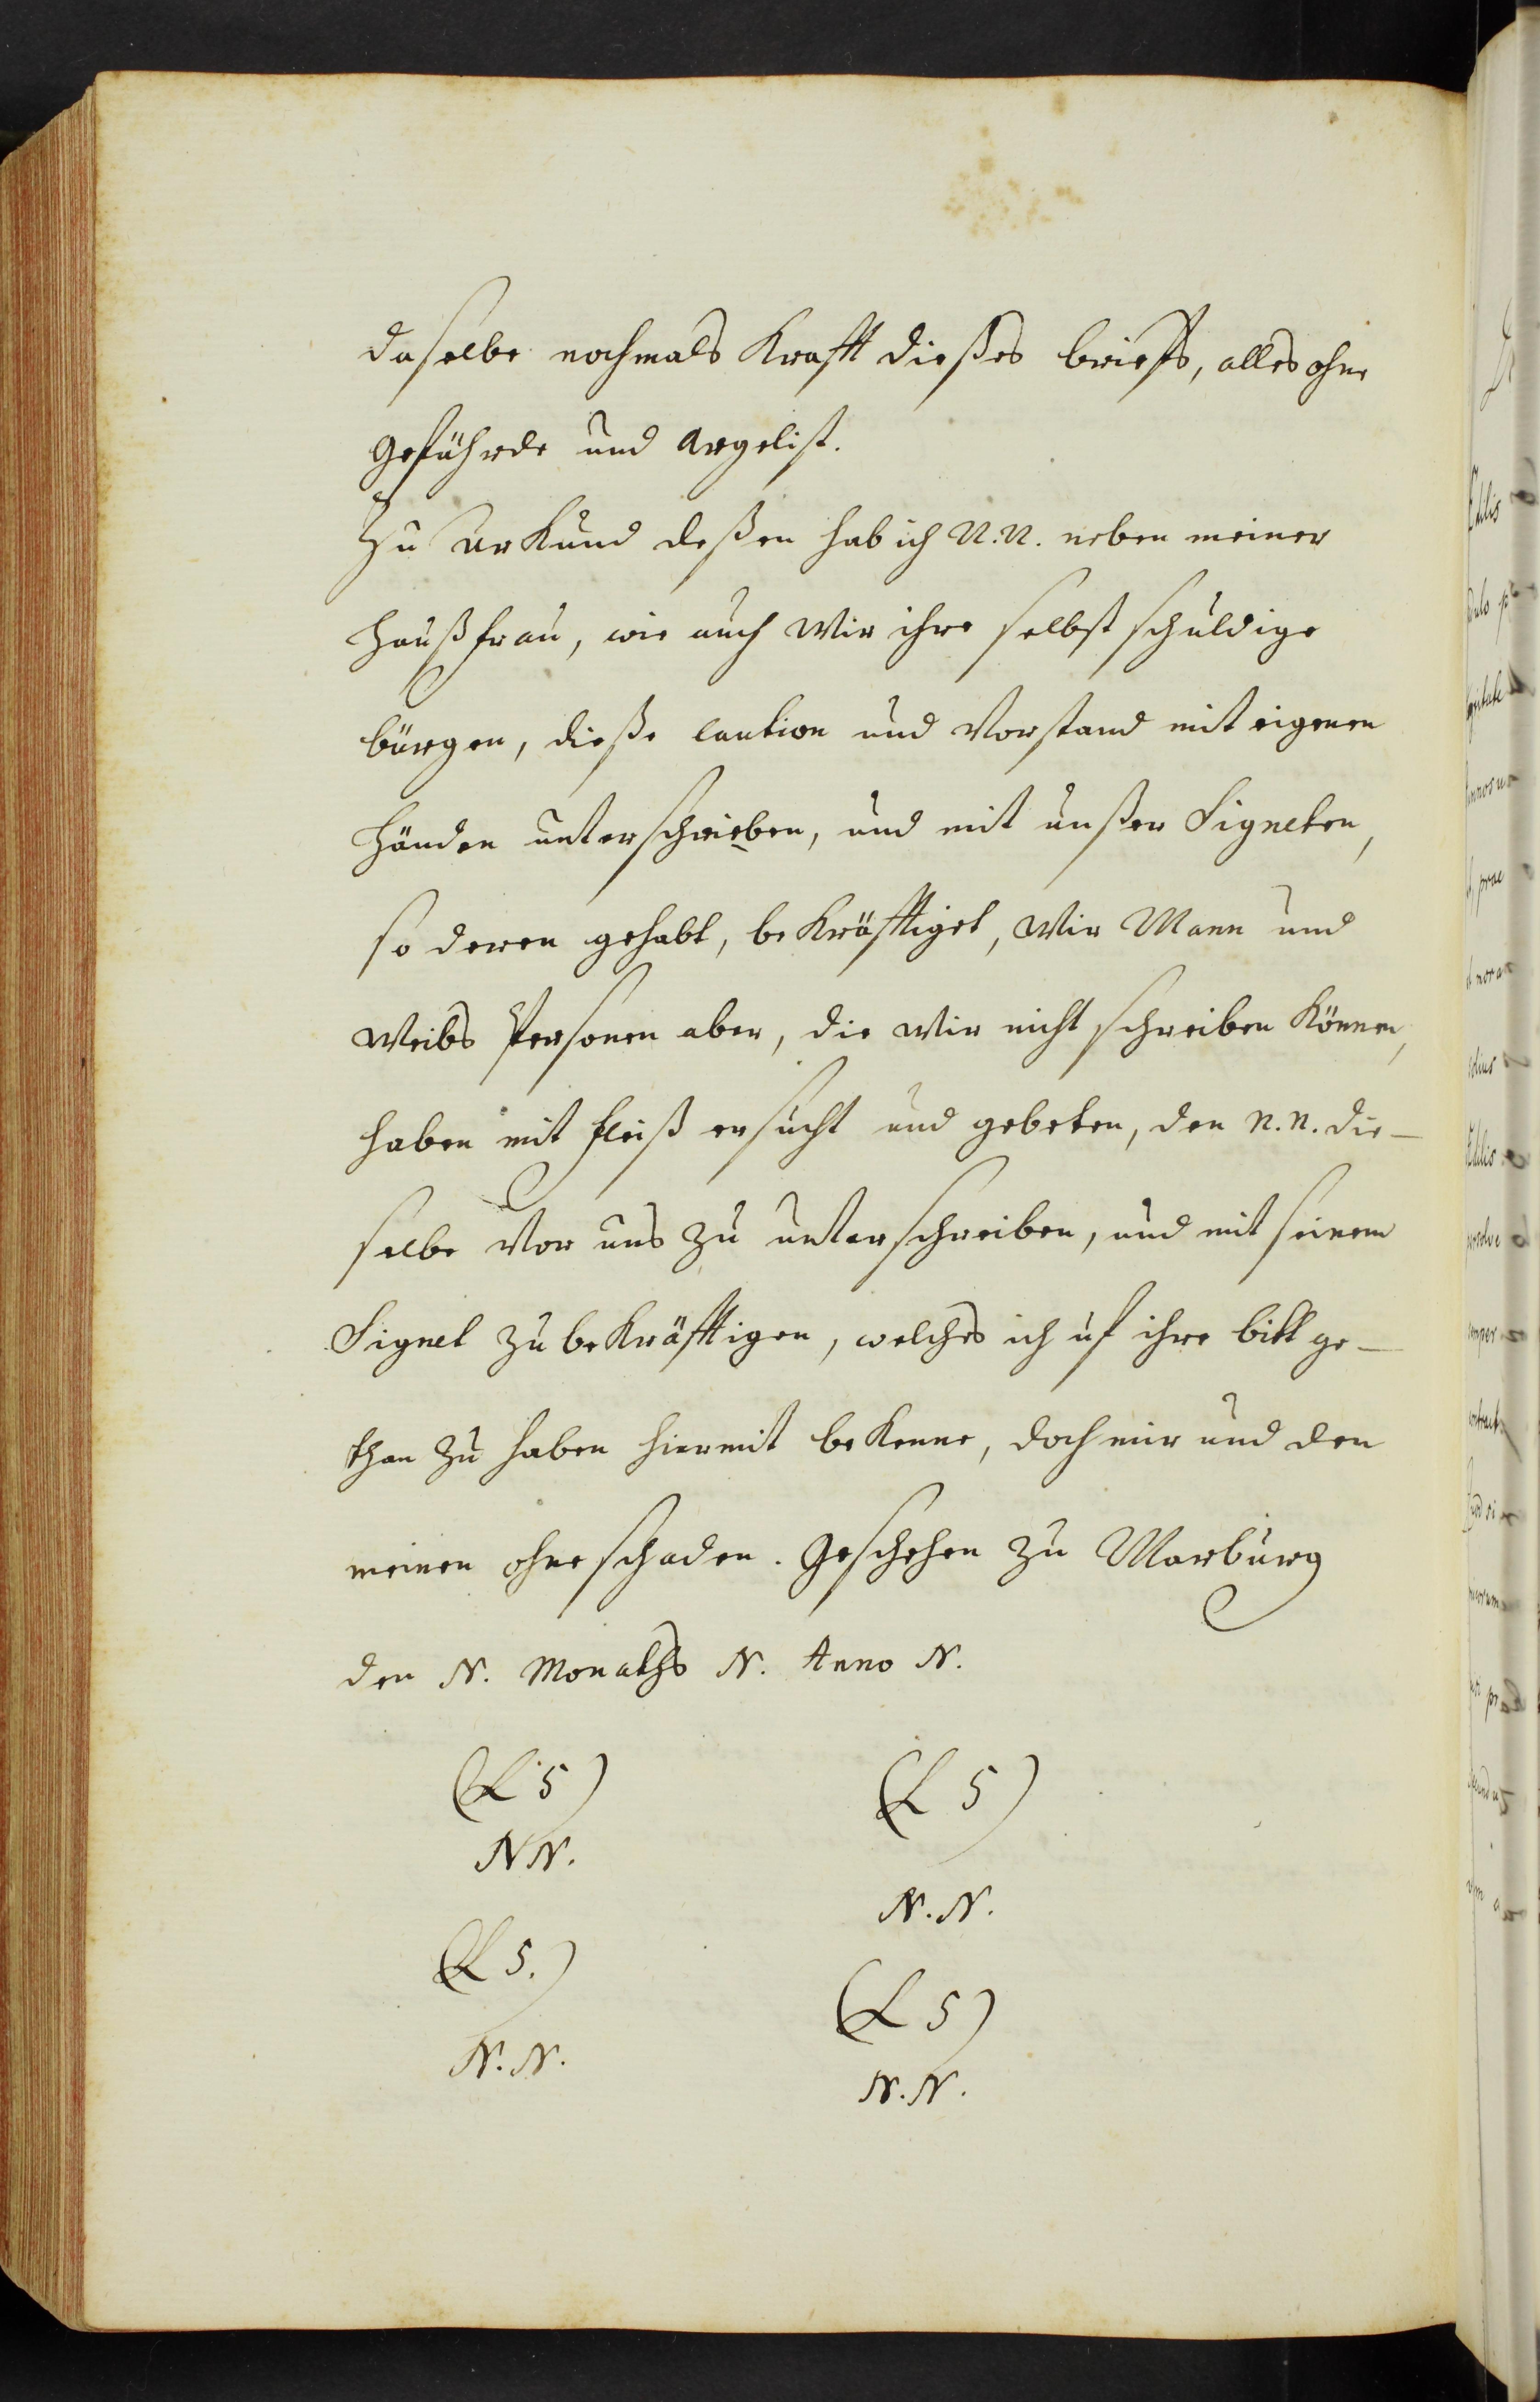 daselbe nochmals Krafft dießes brieffs, alles ohne
Gefährde und Argelist.
Zu Urkund deßen hab ich N.N. neben meiner
Haußfrau, wie auch Wir ihre selbst schuldige
bürgen, dieße Caution und Vorstand mit eigenen
Händen unterschrieben, und mit unßer Signeten,
so deren gehabt, bekräfftiget, Wir Mann und
Weibs Personen aber, die Wir nicht schreiben Können,
haben mit fleiß ersucht und gebeten, den N.N. die–
selbe Vor uns zu unterschreiben, und mit seinem
Signet zu bekräfftigen, welches ich uf ihre bitt ge–
than zu haben hiermit bekenne, doch mir und den
meinen ohne schaden. Geschehen zu Marburg
den N. Monaths N. Anno N.
(L S) (L S)
NN.
N.N.
(L S.)
(L S)
N.N.
N.N.